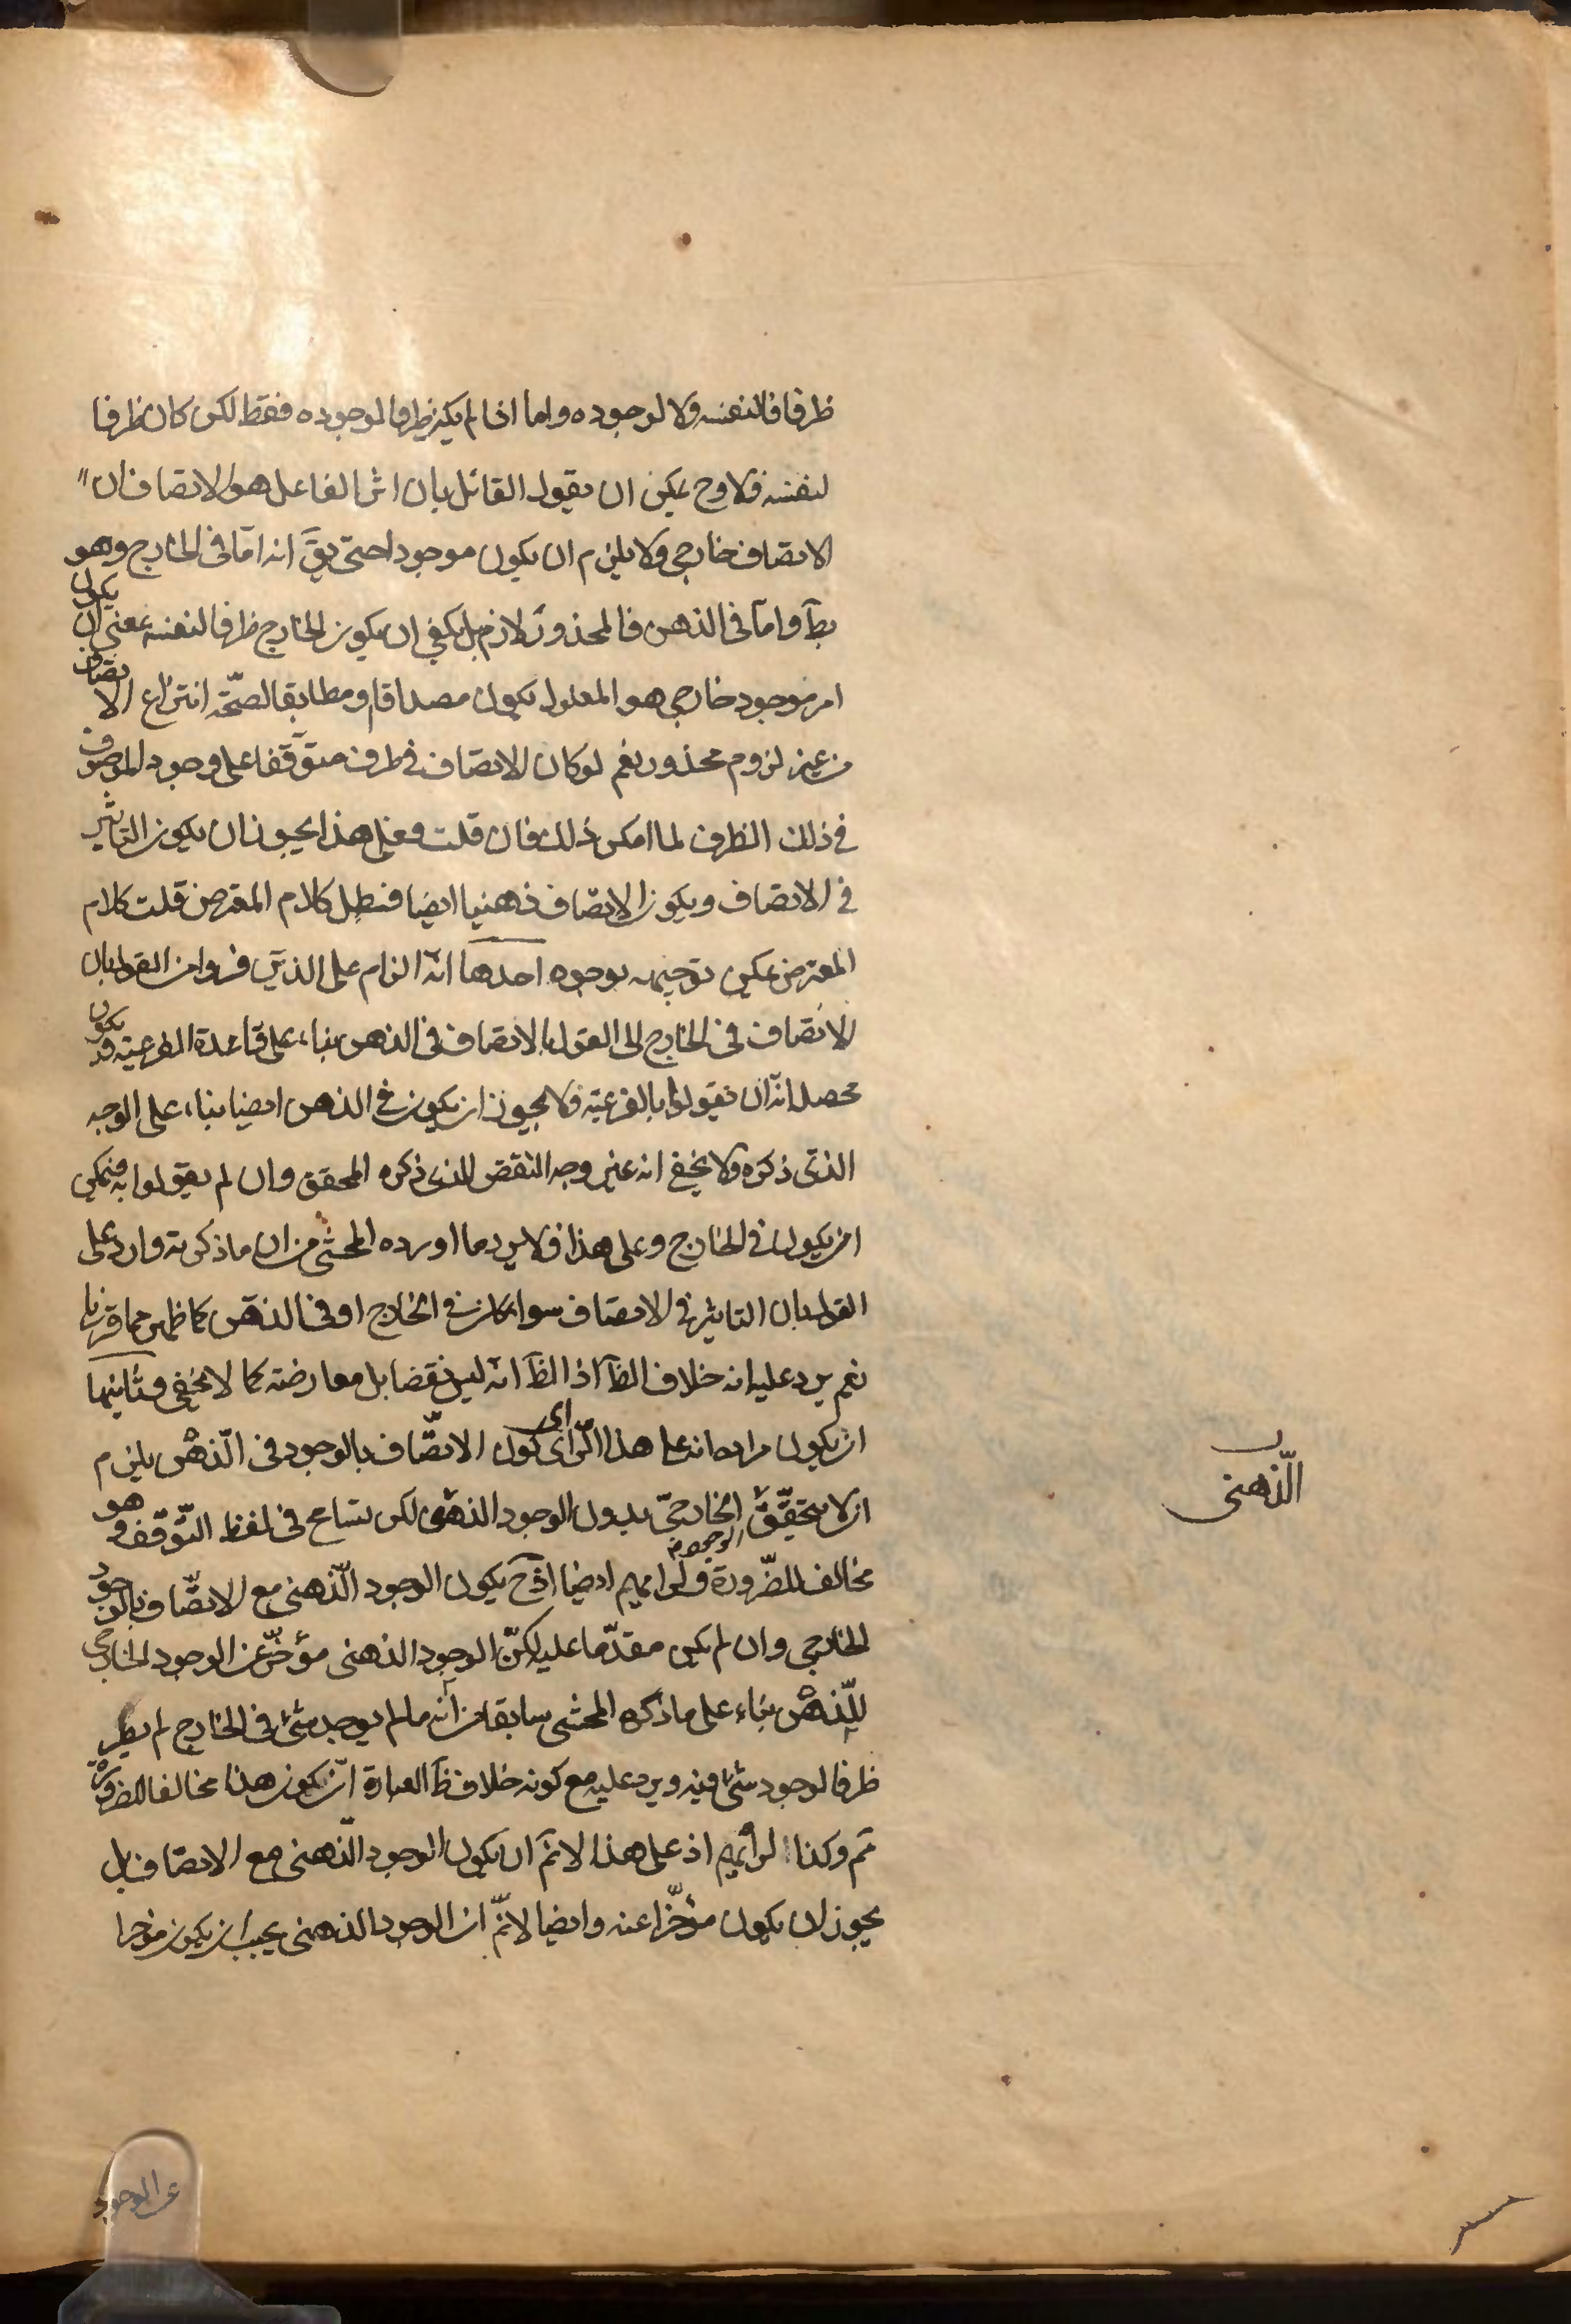 ظرفا لنفسه ولا لوجوده واما اذا لم يكن ظرفا لوجوده فقط لكن كان ظرفا
لنفسه فلا وح يمكن ان يقول القائل بان اثر الفاعل هو الاتصاف ان
الاتصاف خارجى ولا يلزم ان يكون موجودا حتى يقَ انه اما فى الخارج وهو
بطَ واما فى الذهن فالمحذور لازم بل يكفى ان يكون الخارج ظرفا لنفسه بمعنى ان يكون
امر موجود خارجى هو المعلول يكون مصداقا ومطابقا لصحّة انتزاع الاتصاف
من غير لزوم محذور نعم لو كان الاتصاف فى ظرف متوقفا على وجود الموصوف
فى ذلك الظرف لما امكن ذلك فان قلت فعلى هذا يجوز ان يكون التاثير
فى الاتصاف ويكون الاتصاف ذهنيا ايضا فبطل كلام المعترض قلت كلام
المعترض يمكن توجيهه بوجوه احدها انه الزام على الذين فروا من القول بان
الاتصاف فى الخارج الى القول بالاتصاف فى الذهن بناء على قاعدة الفرعية فيكون
محصله انه ان تقولوا بالفرعية فلا يجوز ان يكون فى الذهن ايضا بناء على الوجه
الذى ذكره ولا يخفى انه عين وجه النقض الذى ذكره المحقق وان لم يقولوا به فيمكن
ان يكون فى الخارج وعلى هذا فلا يرد ما اورده المحشى من ان ما ذكرته وارد على
القول بان التاثير فى الاتصاف سواء كان فى الخارج او فى الذهن كما ظهر مما قررنا
نعم يرد عليه انه خلاف الظَ اذ الظَ انه ليس نقضا بل معارضة كما لا يخفى وثانيها
ان يكون مراده انه على هذا الرّاى اى كون الاتصّاف بالوجود فى الذّهن يلزم
ان لا يتحقّق الوجود الخارجىّ بدون الوجود الذهنى لكن تسامح فى لفظ التّوقّف وهو
مخالف للضّرورة ولرايهم ايضا اذ ح يكون الوجود الذّهنى مع الاتصّاف بالوجود
الخارجى وان لم يكن مقدّما عليه لكنّ الوجود الذهنى مؤخّر عن الوجود الخارجى
للذّهن بناء على ما ذكره المحشى سابقا من انه ما لم يوجد شئ فى الخارج لم يصر
ظرفا لوجود شئ فيه ويرد عليه مع كونه خلاف ظَ العبارة ان كون هذا مخالفا للضرورة
ثم وكذا لرأيهم اذ على هذا لانمّ ان يكون الوجود الذّهنى مع الاتصّاف بل
يجوز ان يكون مؤخّرا عنه وايضا لانمّ ان الوجود الذهنى يجب ان يكون مؤخرا
الذّهنى
عن الوجود